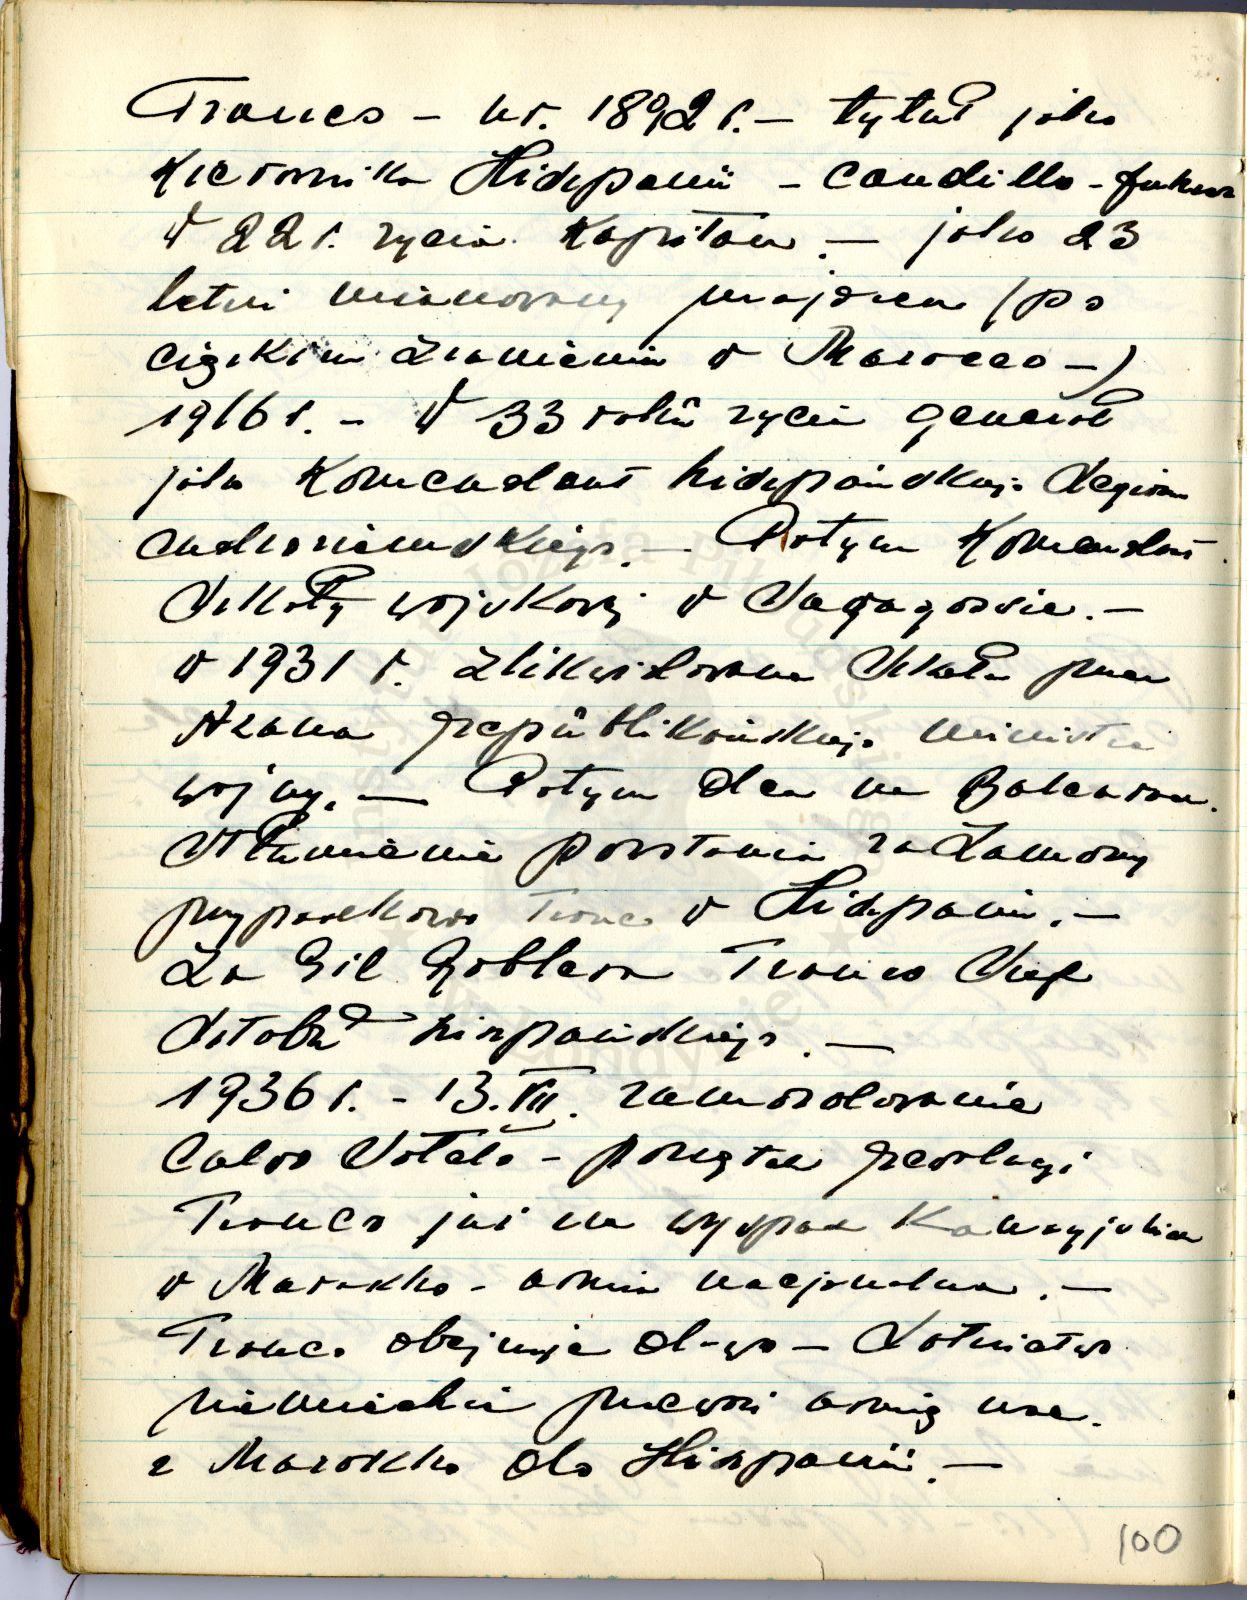 Franco – ur. 1892 r. – tytuł jako
Kierownika Hiszpanii – Caudillo –
W 22 r. życia Kapitan. – jako 23
letni mianowany majorem (po
ciężkim zranieniu w Marocco –)
1916 r. – W 33 roku życia generał
jako Komendant hiszpańskiej Legion
cudzoziemskiego. – Potym Komendant
Szkoły wojskowej w Saragossie. –
w 1931 r. zlikwidowana Szkoła przez
Azana republikańskiego ministra
wojny. – Potym na Balearach.
Stłumienie powstania załamowy
przypadkowo Franco w Hiszpanii. –
Za Gil Roblesa Franco Szef
Sztabu hiszpańskiego. –
1936 r. – 13.VII. zamordowanie
Calvo Sotelo – początek rewolucji
Franco już na wyspach Kanaryjskich
w Marokko – armia nacjonalna. –
Franco obejmuje d-wo – Lotnictwo
niemieckie przewozi armię nac.
z Marokko do Hiszpanii. –
100
Instytut Józefa Piłsudskiego
w Londynie